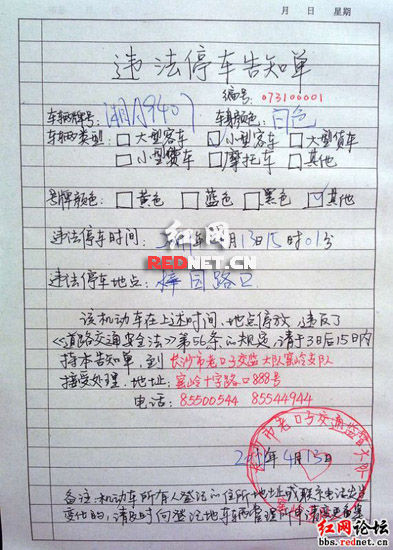 月 日 星期
违法停车告知单
编号:073100001
车辆牌号:湘A9407 车身颜色:白色
车辆类型:□大型客车 □小型客车 □大型货车
□小型货车 □摩托车 □其他
号牌颜色:□黄色 □蓝色 □黑色 ☑其他
红网
REDNET.CN
违法停车时间: 月13日15时01分
违法停车地点:樟园路口
该机动车在上述时间、地点停放,违反了
《道路交通安全法》第56条的规定,请于3日后15日内
持本告知单,到长沙市老口子交监大队窯岭支队
接受处理。地址:窯岭十字路口888号
电话:85500544 85544944
市老口子交通监管大队
4月13日
备注:机动车所有人登记的住所地址或联系电话发生
变化的,请及时向登记地车辆管理所申请变更备案
红网论坛
bbs.rednet.cn